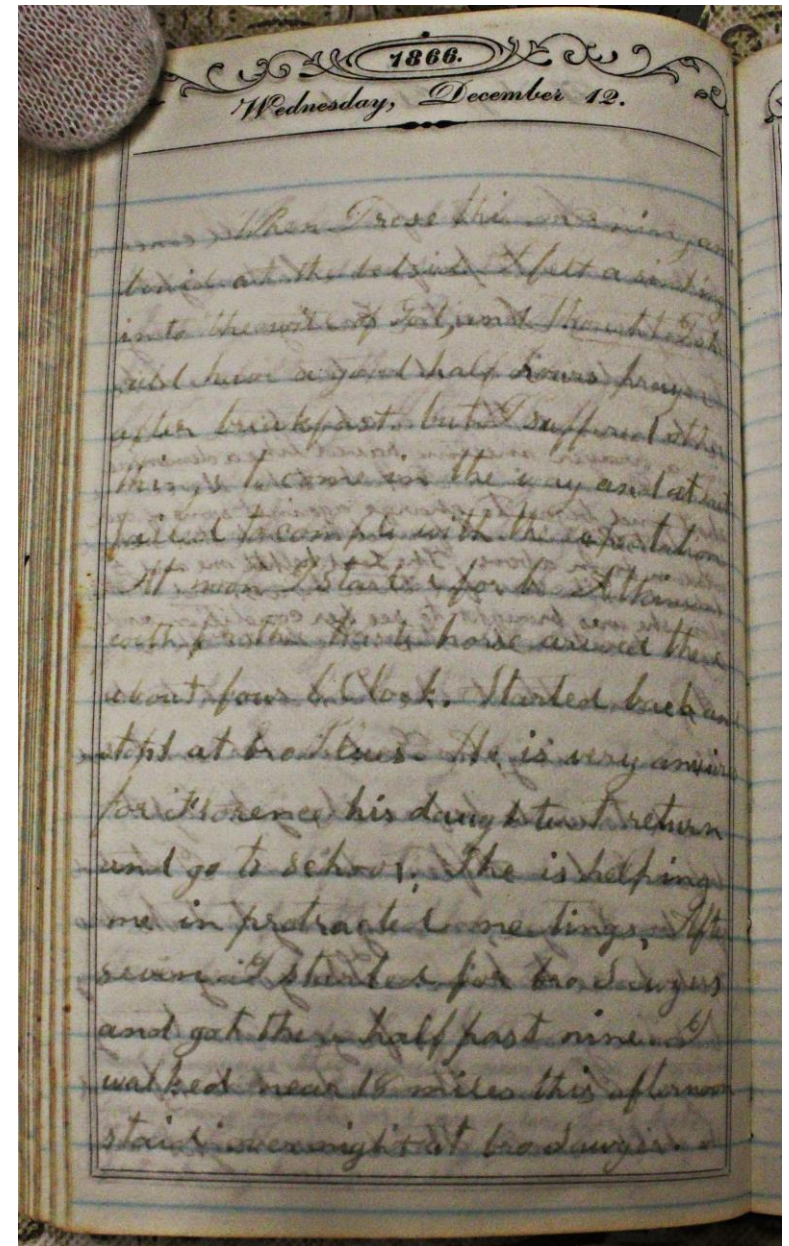 1866.
Wednesday, December 12.
When I rose this morning, an
bowid at the bedside I felt a sinking
into the will of God, and thought I sh
have a good half hours prayer
after breakfast. but I suffered other
things to come in the way and at
failed to comply with the expectation
At noon I started for b. Atkins
with horse arived there
about four O,Clock. Started back an
stopt at bro He is very anxious
for Florence his daughter to return
and go to school. She is helping
me in protracted meetings, Afte
seven I started for bro Sawyers
and got there half past nine. I
walked near 18 miles this afternoon
staid overnight at bro Sawyer.